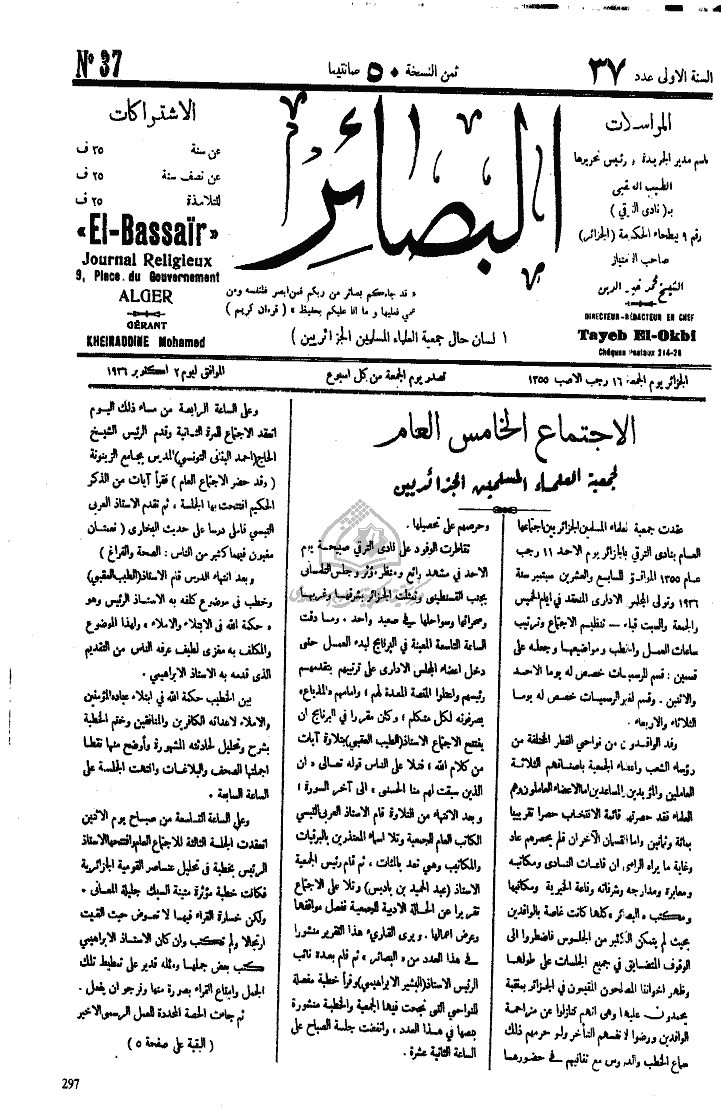 السنة الاولى عدد ٣٧
ثمن النسخة ٥٠ صانتيما
Nº 37
المراسلات
باسم مدير الجريدة ورئيس تحريرها
الطيب العقبي
بـ(نادي الترقي)
رقم ٩ بطحاء الحكومة (الجزائر)
صاحب الامتياز
الشيخ محمد خير الدين
DIRECTEUR-RÉDACTEUR EN CHEF
Tayeb El-Okbi
Chèques Postaux 214-28
البصائر
« قد جاءكم بصائر من ربكم فمن ابصر فلنفسه ومن
عمي فعليها وما انا عليكم بحفيظ » (قرءان كريم)
(لسان حال جمعية العلماء المسلمين الجزائريين)
الاشتراكات
عن سنة ٢٥ ف
عن نصف سنة ٢٥ ف
للتلامذة ٢٥ ف
«El-Bassaïr»
Journal Religieux
9, Place du Gouvernement
ALGER
GÉRANT
KHEIRADDINE Mohamed
الجزائر يوم الجمعة ١٦ رجب الاصب ١٣٥٥
تصدر يوم الجمعة من كل اسبوع
الموافق ليوم ٢ اكتوبر ١٩٣٦
الاجتماع الخامس العام
لجمعية العلماء المسلمين الجزائريين
عقدت جمعية العلماء المسلمين الجزائريين اجتماعها
العام بنادي الترقي بالجزائر يوم الاحد ١١ رجب
عام ١٣٥٥ الموافق السابع والعشرين سبتمبر سنة
١٩٣٦ وتولى المجلس الادارى المنعقد في ايام الخميس
والجمعة والسبت قباه — تنظيم الاجتماع وترتيب
ساعات العمل والخطب ومواضيعها وجعله على
قسمين : قسم للرسميات خصص له يوما الاحد
والاثنين . وقسم لغير الرسميات خصص له يوما
الثلاثاء والاربعاء .
وفد الوافدون من نواحي القطر المختلفة من
رؤساء الشعب واعضاء الجمعية باصنافهم الثلاثة
العاملين والمؤيدين والمساعدين اما الاعضاء العاملون وهم
العلماء فقد حصرتهم قائمة الانتخاب حصرا تقريبا
بمائة وثمانين واما القسمان الآخران فلم يحصرهم عاد
وغاية ما يراه الرائي ان قاعات النادى ومكاتبه
ومعابره ومدارجه وشرفاته وقاعة الخيرية ومكاتبها
ومكتب « البصائر » كلها كانت غاصة بالوافدين
بحيث لم يتمكن الكثير من الجلوس فاضطروا الى
الوقوف المتضايق في جميع الجلسات على طولها
وظهر اخواننا المصلحون المقيمون في الجزائر بمنقبة
يحمدون عليها وهي انهم تنازلوا عن مزاحمة
الوافدين ورضوا لانفسهم التأخر ولو حرمهم ذلك
سماع الخطب والدروس مع تفانيهم في حضورها
وحرصهم على تحصيلها .
تقاطرت الوفود على نادى الترقي صبيحة يوم
الاحد في مشهد رائع ومنظر مؤثر وجلس التلمساني
بجنب القسنطيني وتمثلت الجزائر بشرقها وغربها
وصحرائها وسواحلها في صعيد واحد . وما دقت
الساعة التاسعة المعينة في البرنامج لبدء العمل حتى
دخل اعضاء المجلس الادارى على ترتيبهم يتقدمهم
رئيسهم واعتلوا المنصة المعدة لهم ، وامامهم «المذياع»
يصرفونه لكل متكلم ، وكان مقررا في البرنامج ان
يفتتح الاجتماع الاستاذ(الطيب العقبي)بتلاوة آيات
من كلام الله ، فتلا على الناس قوله تعالى « ان
الذين سبقت لهم منا الحسنى » الى آخر السورة ،
وبعد الانتهاء من التلاوة قام الاستاذ العربي التبسي
الكاتب العام للجمعية وتلا اسماء المعتذرين بالبرقيات
والمكاتيب وهي تعد بالمئات ، ثم قام رئيس الجمعية
الاستاذ (عبد الحميد بن باديس) وتلا على الاجتماع
تقريرا عن الحالة الادبية للجمعية ففصل مواقفها
وعرض اعمالها . ويرى القارىء هذا التقرير منشورا
في هذا العدد من « البصائر » ثم قام بعده نائب
الرئيس الاستاذ(البشير الابراهيمي)وقرأ خطبة مفصلة
للنواحي التي نجحت فيها الجمعية والخطبة منشورة
بنصها في هذا العدد ، وانفضت جلسة الصباح على
الساعة الثانية عشرة .
وعلى الساعة الرابعة من مساء ذلك اليوم
انعقد الاجتماع للمرة الثانية وقدم الرئيس الشيخ
الحاج(احمد البناني التونسي)المدرس بجامع الزيتونة
(وقد حضر الاجتماع العام) فقرأ آيات من الذكر
الحكيم افتتحت بها الجلسة ، ثم تقدم الاستاذ العربى
التبسي فاملى درسا على حديث البخارى ( نعمتان
مغبون فيهما كثير من الناس : الصحة والفراغ )
وبعد انتهاء الدرس قام الاستاذ(الطيب العقبي)
وخطب في موضوع كلفه به الاستاذ الرئيس وهو
« حكمة الله في الابتلاء والاملاء » ولهذا الموضوع
والمكلف به مغزى لطيف عرفه الناس من التقديم
الذى قدمه به الاستاذ الابراهيمي .
بين الخطيب حكمة الله في ابتلاء عباده المؤمنين
والاملاء لاعدائه الكافرين والمنافقين وختم الخطبة
بشرح وتحليل لحادثته المشهورة وأوضح منها نقطا
اجملتها الصحف والبلاغات وانتهت الجلسة على
الساعة السابعة .
وعلى الساعة التاسعة من صباح يوم الاثنين
انعقدت الجلسة الثالثة للاجتماع العام افتتحها الاستاذ
الرئيس بخطبة في تحليل عناصر القومية الجزائرية
فكانت خطبة مؤثرة متينة السبك جليلة المعانى .
ولكن خسارة القراء فيها لا تعوض حيث القيت
ارتجالا ولم تكتب وان كان الاستاذ الابراهيمي
كتب بعض جملها ومثله قدير على تمطيط تلك
الجمل وامتاع القراء بصورة منها ونرجو ان يفعل .
ثم جاءت الحصة المحددة للعمل الرسمي الاخير
( البقية على صفحة ٥ )
297